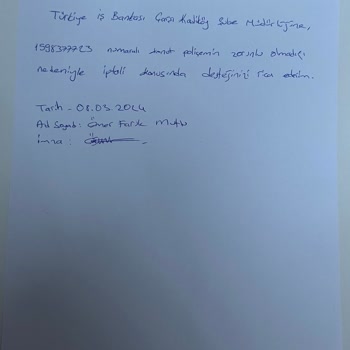 Türkiye iş Bankası Çarşı Kadıköy Şube Müdürlüğüne,
1598377723 numaralı konut poliçemin zorunlu olmadığı
nedeniyle iptali konusunda desteğinizi rica ederim.
Tarih - 08.05.2024
Ad Soyad: Ömer Faruk Mutlu
imza: